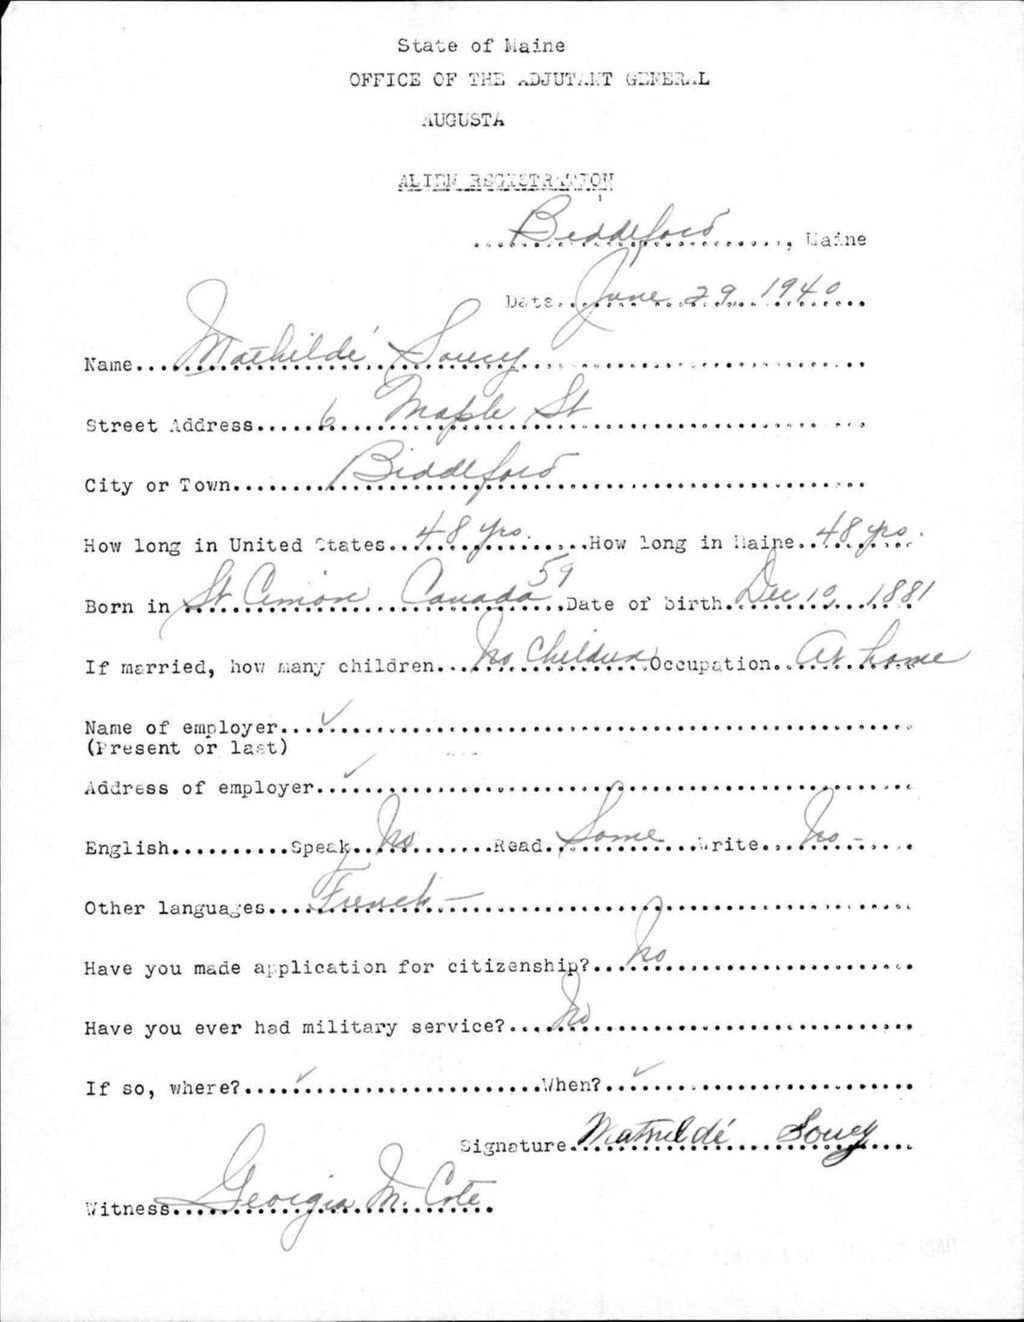 State of Maine
OFFICE OF THE ADJUTANT GENERAL
AUGUSTA
ALIEN REGISTRATION
Biddeford, Maine
Date June 29, 1940
Name Mathildé Soucy
Street Address 6 Maple St
City or Town Biddeford
How long in United States 48 yrs. How long in Maine 48 yrs.
59
Born in St Cimon Canada Date of birth Dec 10, 1881
If married, how many children No Children Occupation At home
Name of employer ✓
(Present or last)
Address of employer ✓
English Speak No Read Some Write No -
Other languages French -
Have you made application for citizenship? No
Have you ever had military service? No
If so, where? ✓ When? ✓
Signature Mathildé Soucy
Witness Georgia M. Cote